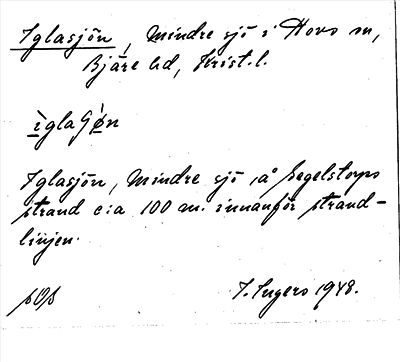 Iglasjön, Mindre sjö i Hovs sn,
Bjäre hd, Krist. l.
ìglaʃø̀n
Iglasjön, Mindre sjö å Segelstorps
strand c:a 100 m. innanför strand-
linjen.
J. Ingers 1948.